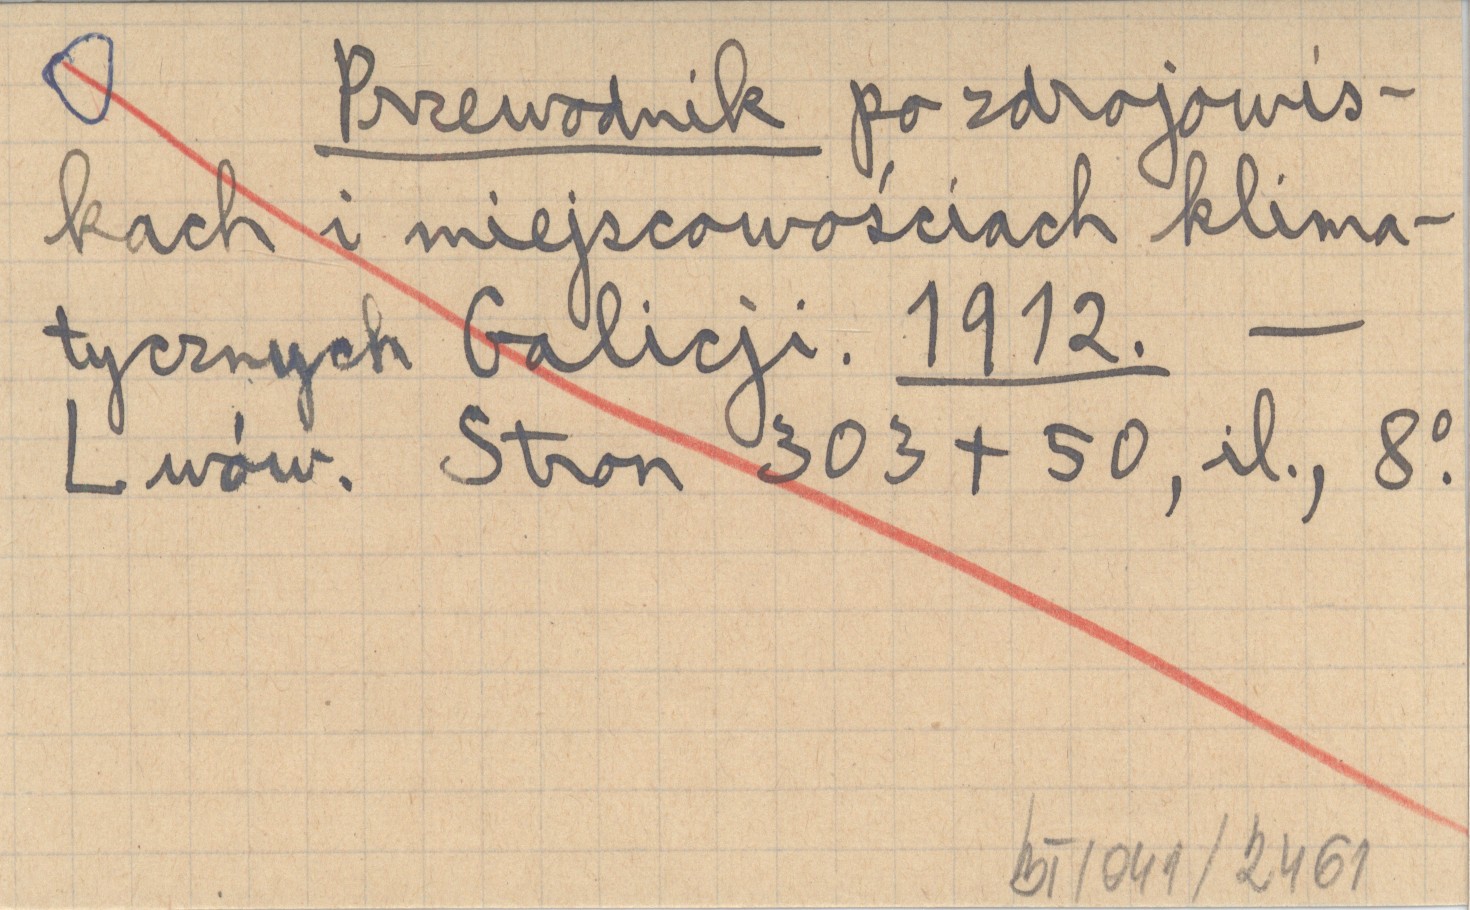 Przewodnik po zdrojowis-
kach i miejscowościach klima-
tycznych Galicji. 1912. —
Lwów. Stron 303 + 50, il., 8°.
/041/2461